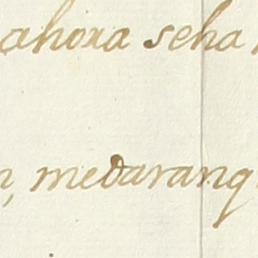 ahora seha
n, medaranq